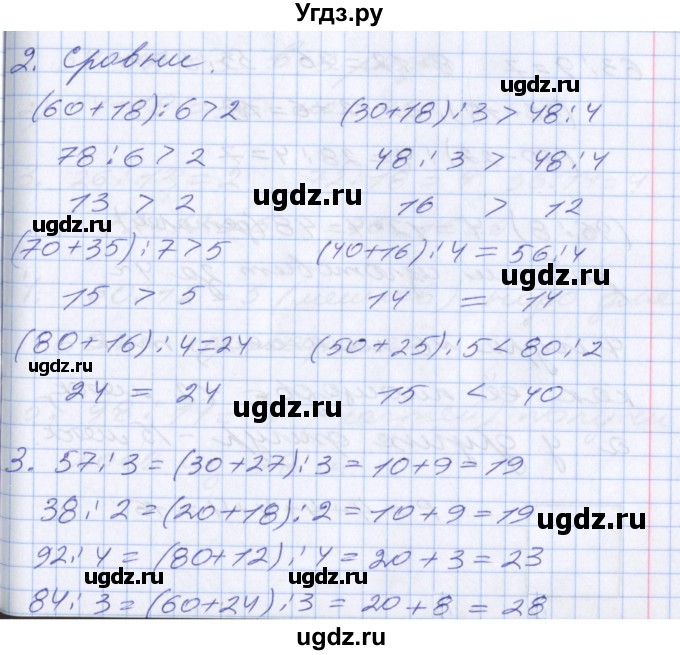 Угдз.ру
2. Сравни.
(60+18):6>2 (30+18):3 > 48:4
78:6 > 2 48:3 > 48:4
13 > 2 16 > 12
(70+35):7>5 (40+16):4 = 56:4
15 > 5 14 = 14
(80+16):4=24 (50+25):5<80:2
24 = 24 15 < 40
3. 57:3 = (30+27):3 = 10+9 = 19
38:2 = (20+18):2 = 10+9 = 19
92:4 = (80+12):4 = 20+3 = 23
84:3 = (60+24):3 = 20+8 = 28
ugdz.ru
ugdz.ru
ugdz.ru
ugdz.ru
ugdz.ru
ugdz.ru
ugdz.ru
ugdz.ru
ugdz.ru
ugdz.ru
ugdz.ru